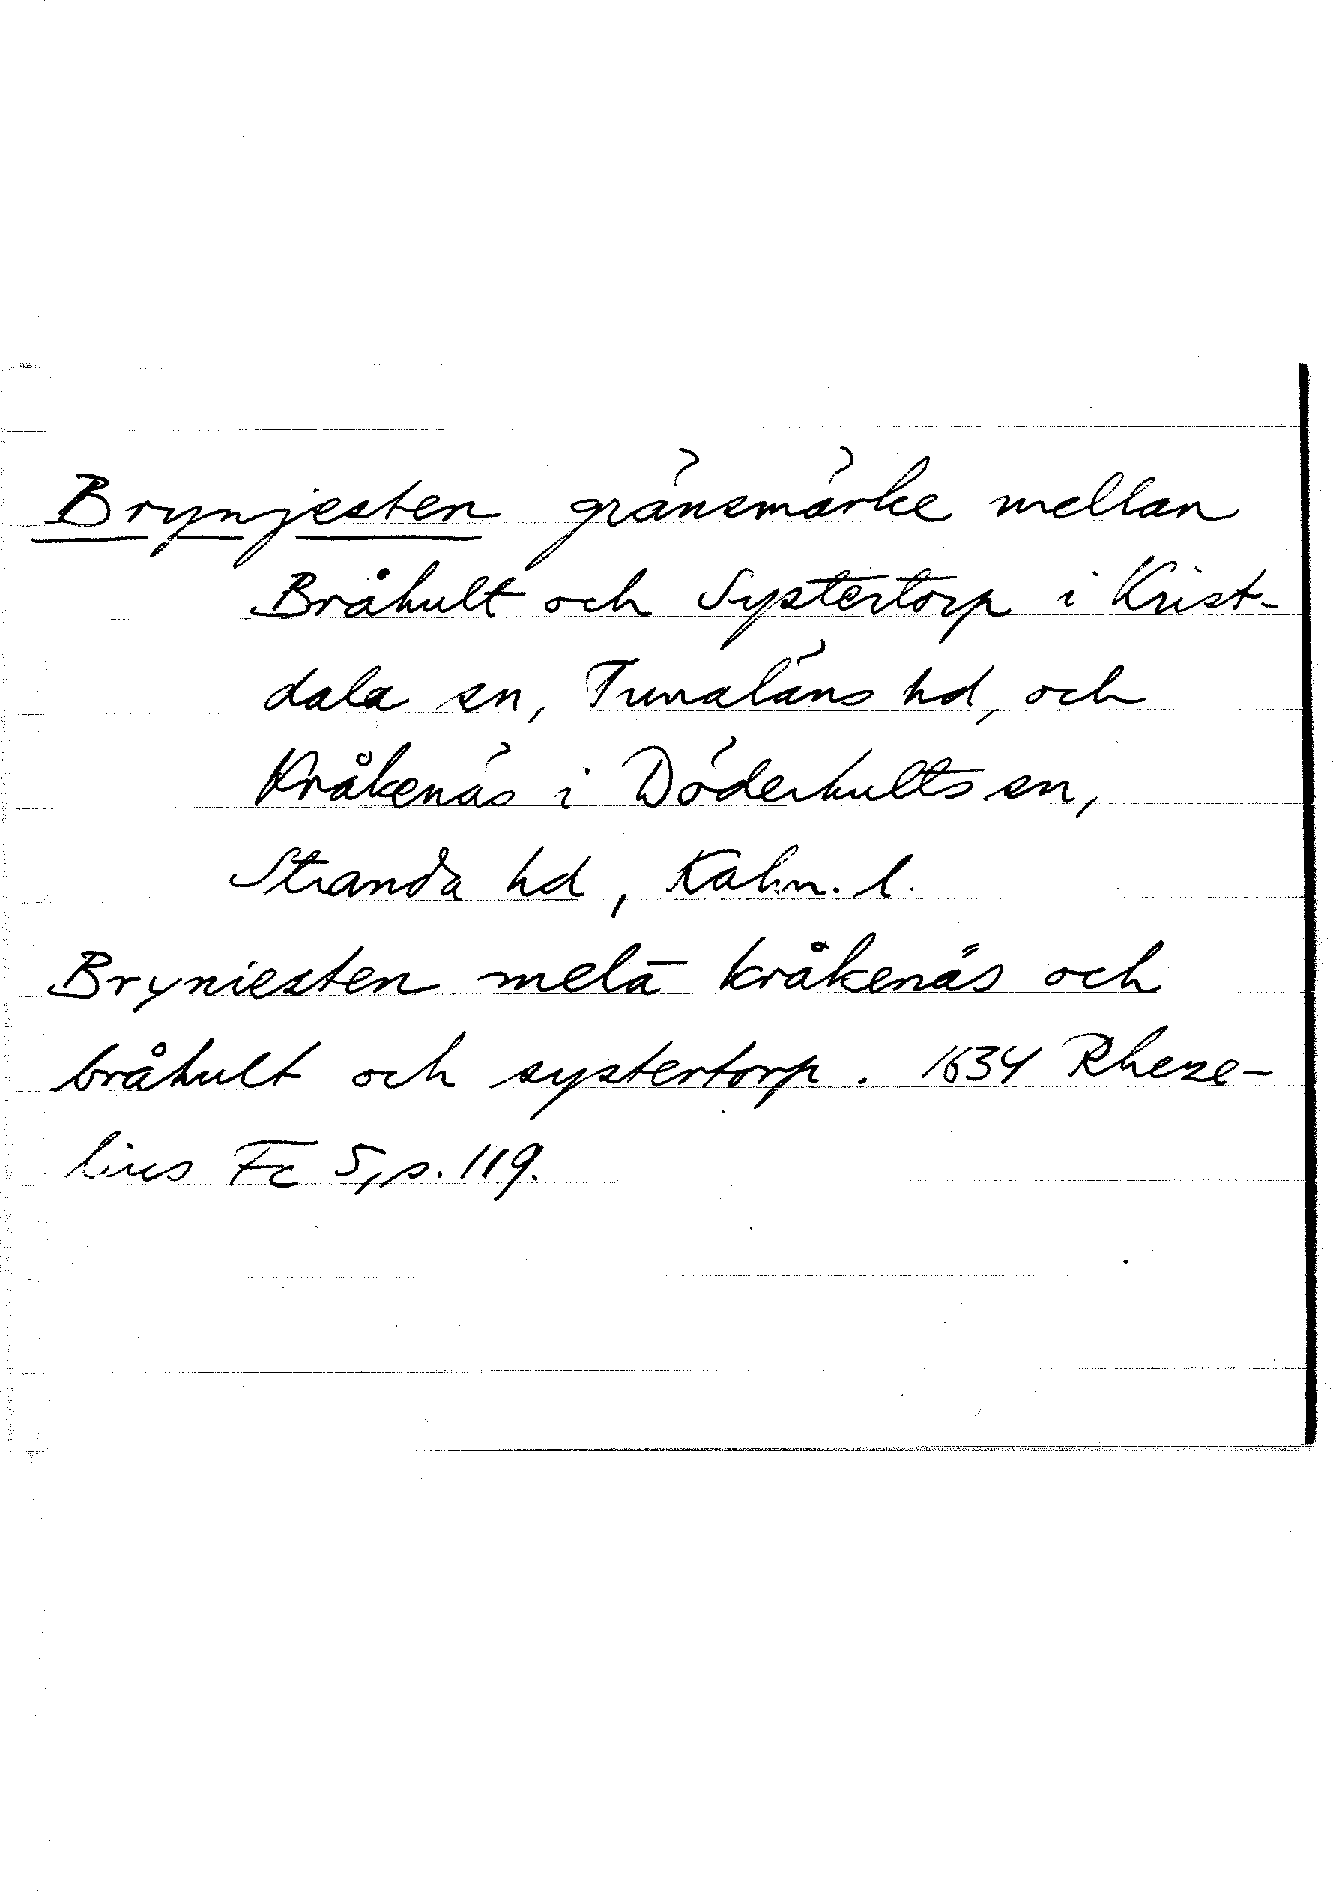 Brynjesten gränsmärke mellan
Bråhult och Systertorp i Krist-
dala sn, Tunaläns hd, och
Kråkenäs i Döderhults sn,
Stranda hd, Kalm. l.
Bryniesten melā kråkenäs och
bråhult och systertorp. 1634 Rheze-
lius Fc 5, s. 119.